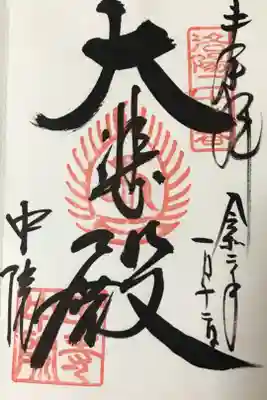 奉拝
令和二年
一月十二日
大悲殿
中院